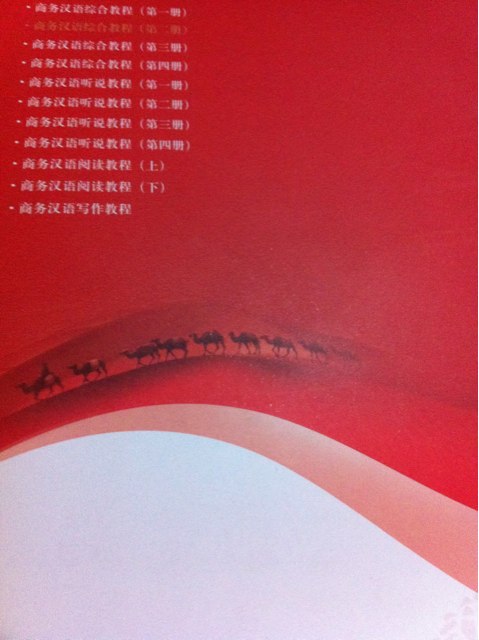 ·商务汉语综合教程（第一册）
·商务汉语综合教程（第二册）
·商务汉语综合教程（第三册）
·商务汉语综合教程（第四册）
·商务汉语听说教程（第一册）
·商务汉语听说教程（第二册）
·商务汉语听说教程（第三册）
·商务汉语听说教程（第四册）
·商务汉语阅读教程（上）
·商务汉语阅读教程（下）
·商务汉语写作教程